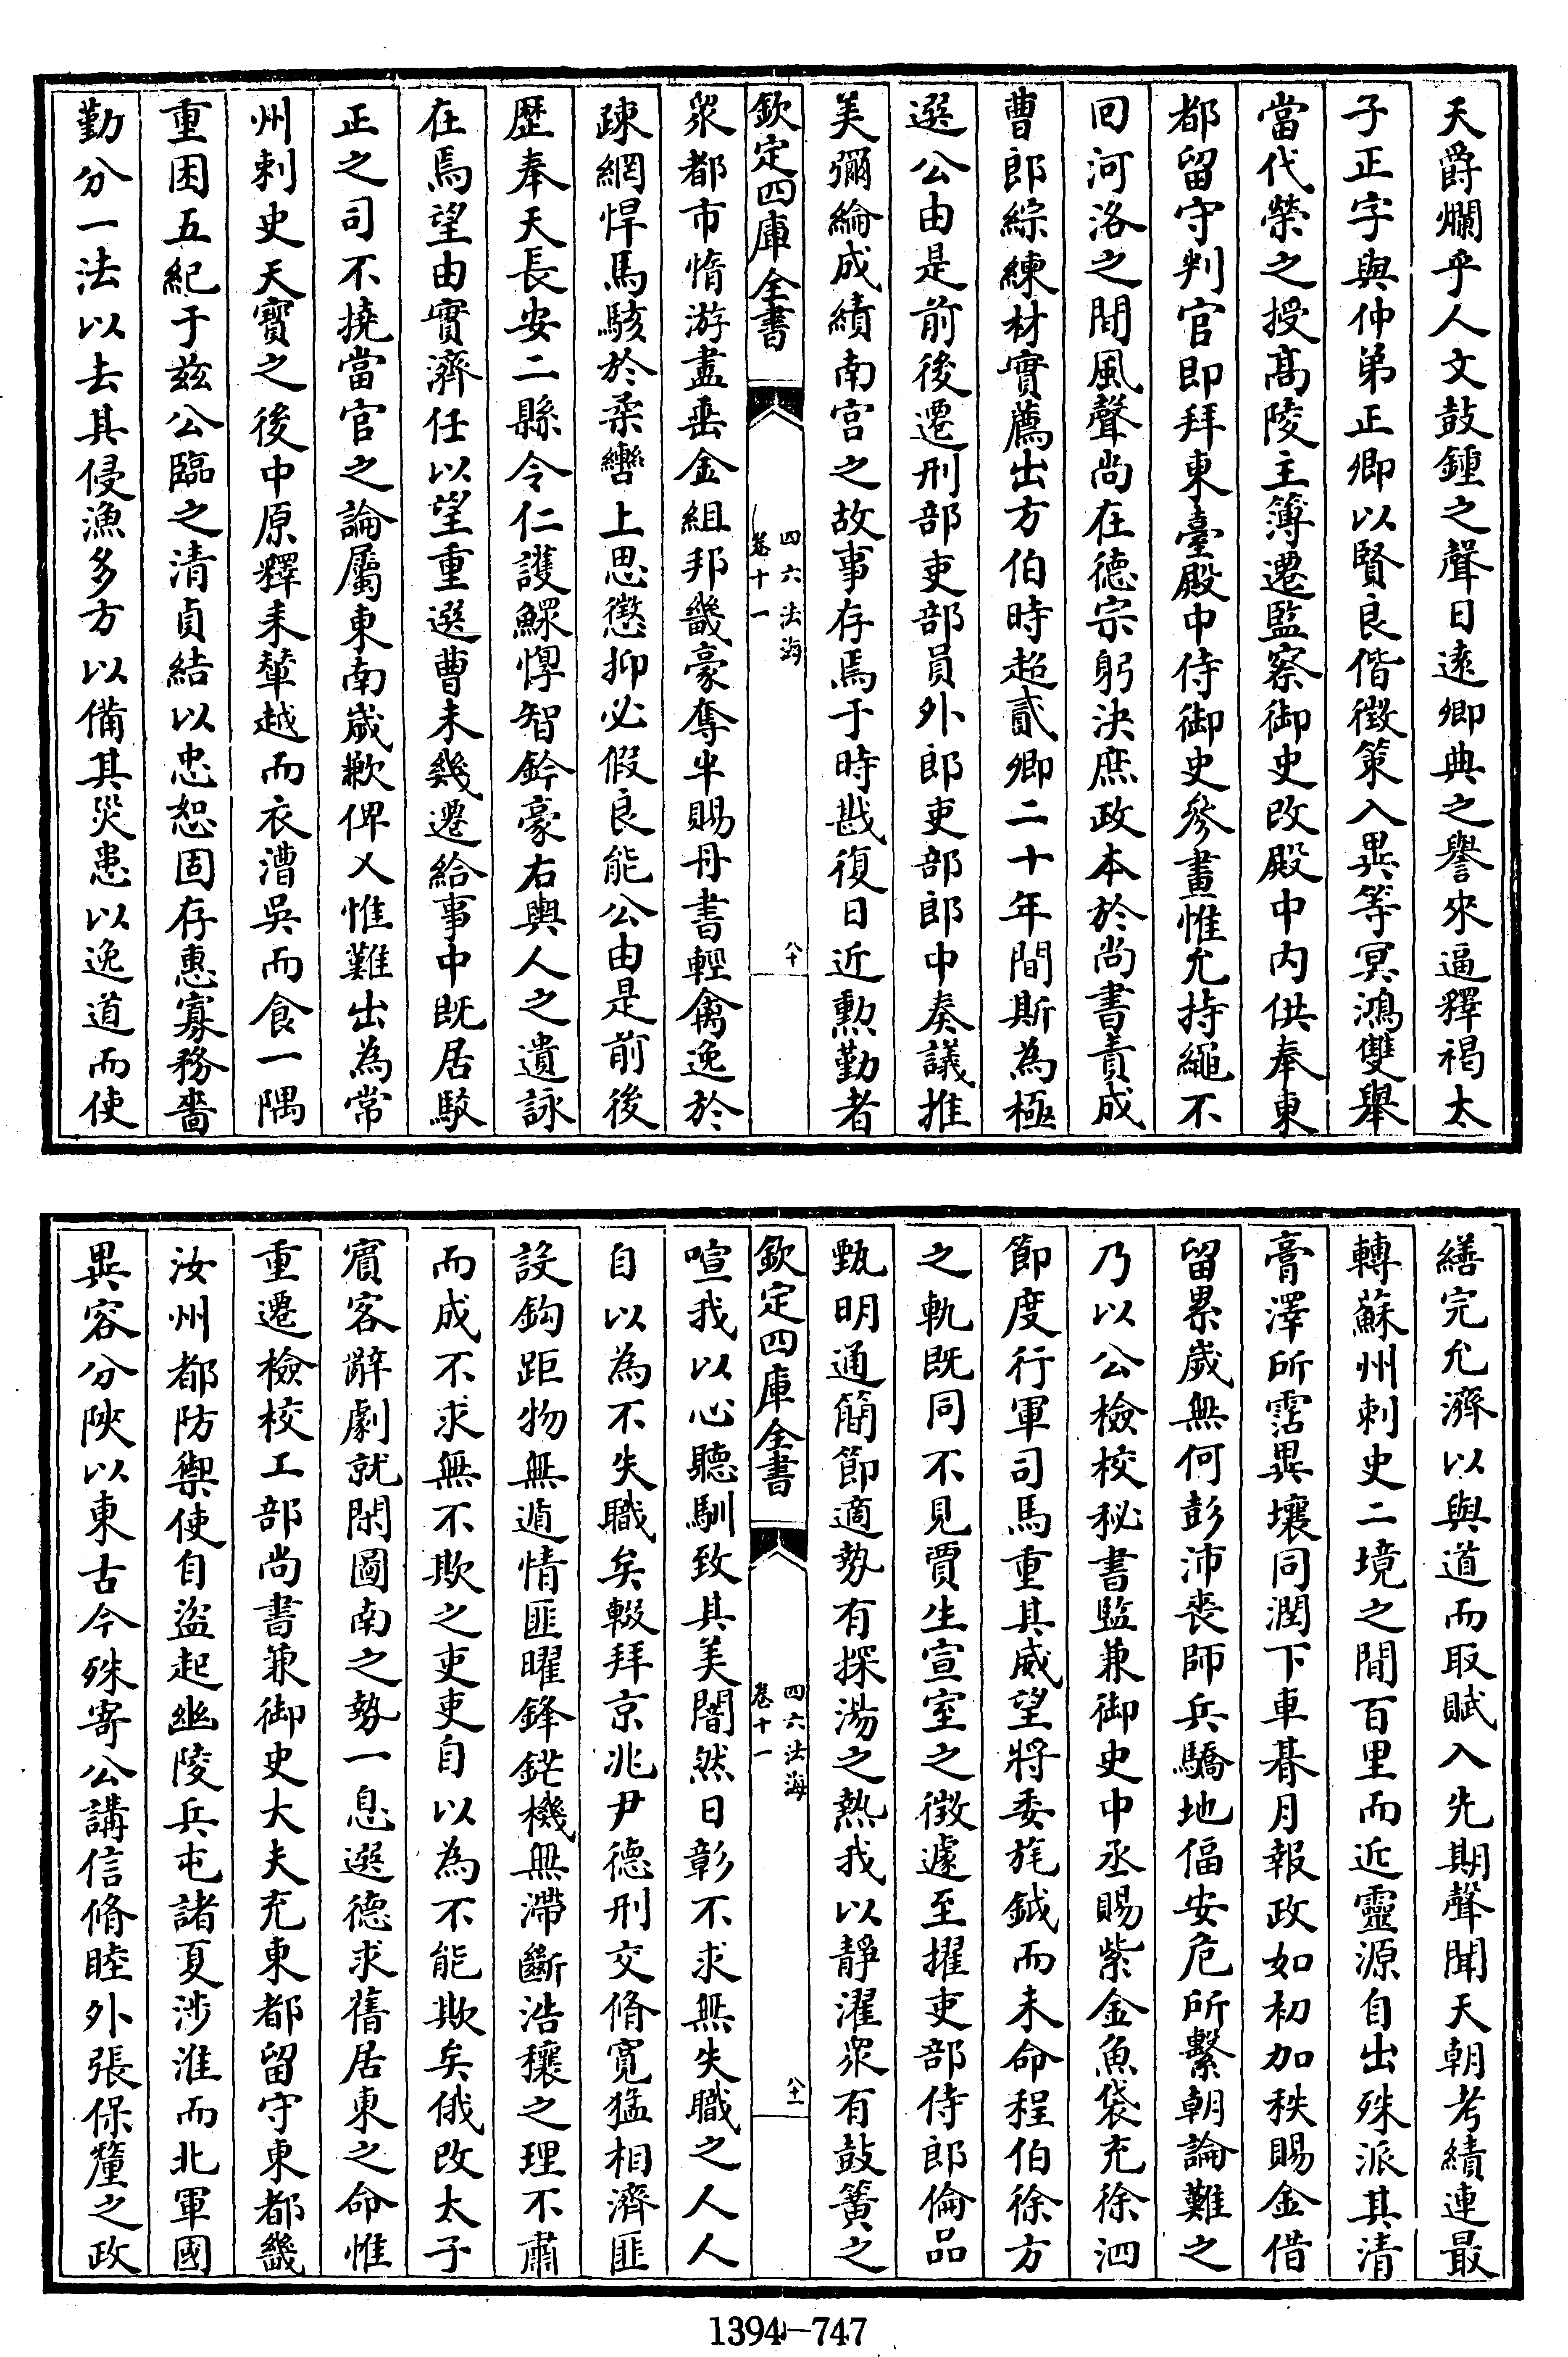 天爵爛乎人文鼓鍾之聲日遠卿典之譽來逼釋褐太
子正字與仲弟正卿以賢良偕徴策入異等冥鴻雙舉
當代榮之授髙陵主簿遷監察御史改殿中内供奉東
都留守判官即拜東臺殿中侍御史參畫惟允持繩不
回河洛之間風聲尚在德宗躬決庶政本於尚書責成
曹郎綜練材實薦出方伯時超貳卿二十年間斯為極
選公由是前後遷刑部吏部員外郎吏部郎中奏議推
美彌綸成績南宫之故事存焉于時戡復日近勲勤者
欽定四庫全書
四六法海
卷十一
八十
衆都市惰游盡垂金組邦畿豪奪半賜丹書輕禽逸於
疎網悍馬駭於柔轡上思懲抑必假良能公由是前後
歴奉天長安二縣令仁護鰥惸智鈐豪右輿人之遺詠
在焉望由實濟任以望重選曹未幾遷給事中既居駮
正之司不撓當官之論屬東南歲歉俾乂惟難出為常
州刺史天寳之後中原釋耒輦越而衣漕吳而食一隅
重困五紀于兹公臨之清貞結以忠恕固存惠寡務嗇
勤分一法以去其侵漁多方以備其災患以逸道而使
繕完允濟以與道而取賦入先期聲聞天朝考績連最
轉蘇州刺史二境之間百里而近靈源自出殊派其清
膏澤所霑異壤同潤下車朞月報政如初加秩賜金借
留累歲無何彭沛喪師兵驕地偪安危所繫朝論難之
乃以公檢校秘書監兼御史中丞賜紫金魚袋充徐泗
節度行軍司馬重其威望將委旄鉞而未命程伯徐方
之軌既同不見賈生宣室之徴遽至擢吏部侍郎倫品
甄明通簡節適勢有探湯之熱我以靜濯衆有鼓簧之
欽定四庫全書
四六法海
卷十一
八十一
喧我以心聽馴致其美闇然日彰不求無失職之人人
自以為不失職矣輟拜京兆尹德刑交脩寛猛相濟匪
設鈎距物無遁情匪曜鋒鋩機無滯斷浩穰之理不肅
而成不求無不欺之吏吏自以為不能欺矣俄改太子
賔客辭劇就閑圖南之勢一息選德求舊居東之命惟
重遷檢校工部尚書兼御史大夫充東都留守東都畿
汝州都防禦使自盜起幽陵兵屯諸夏涉淮而北軍國
異容分陜以東古今殊寄公講信脩睦外張保釐之政
1394-747